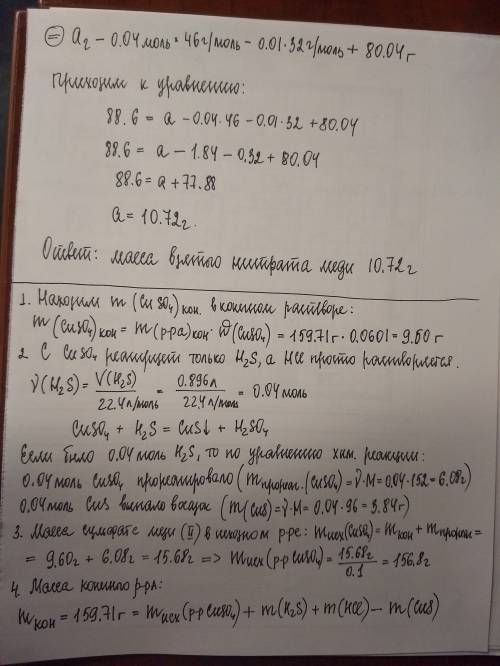 = a г − 0.04 моль · 46 г/моль − 0.01 · 32 г/моль + 80.04 г
Приходим к уравнению:
88.6 = a − 0.04·46 − 0.01·32 + 80.04
88.6 = a − 1.84 − 0.32 + 80.04
88.6 = a + 77.88
a = 10.72 г.
Ответ: масса взятого нитрата меди 10.72 г
1. Находим m (CuSO₄) кон. в конечном растворе:
m (CuSO₄) кон = m (р-ра) кон · ω (CuSO₄) = 159.71 г · 0.0601 = 9.60 г
2. С CuSO₄ реагирует только H₂S, а HCl просто растворяется.
ν(H₂S) = V(H₂S) / 22.4 л/моль = 0.896 л / 22.4 л/моль = 0.04 моль
CuSO₄ + H₂S = CuS↓ + H₂SO₄
Если было 0.04 моль H₂S, то по уравнению хим. реакции:
0.04 моль CuSO₄ прореагировало (m прореаг. (CuSO₄) = ν·M = 0.04·152 = 6.08 г)
0.04 моль CuS выпало в осадок (m(CuS) = ν·M = 0.04·96 = 3.84 г)
3. Масса сульфата меди (II) в исходном р-ре: m исх (CuSO₄) = m кон + m прореаг =
= 9.60 г + 6.08 г = 15.68 г => m исх (р-р CuSO₄) = 15.68 г / 0.1 = 156.8 г
4. Масса конечного р-ра:
m кон = 159.71 г = m исх (р-р CuSO₄) + m (H₂S) + m (HCl) − m (CuS)